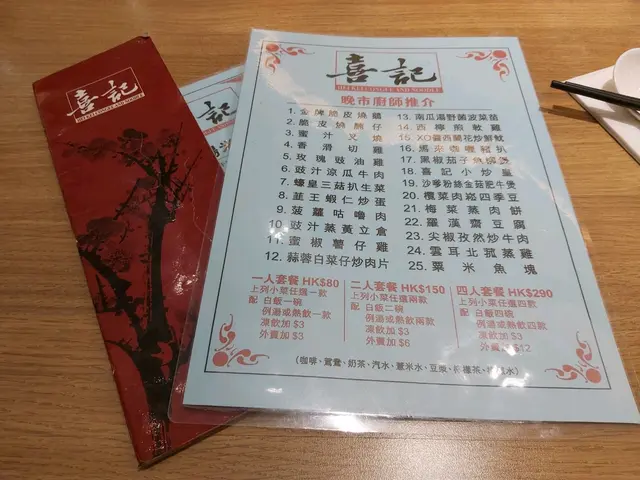 喜記
HEI KEE CONGEE AND NOODLE
喜記
HEI KEE CONGEE AND NOODLE
晚市廚師推介
1. 金牌脆皮燒鵝
2. 脆皮燒腩仔
3. 蜜汁叉燒
4. 香滑切雞
5. 玫瑰豉油雞
6. 豉汁涼瓜牛肉
7. 蠔皇三菇扒生菜
8. 韮王蝦仁炒蛋
9. 菠蘿咕嚕肉
10. 豉汁蒸黃立倉
11. 蜜椒薯仔雞
12. 蒜蓉白菜仔炒肉片
13. 南瓜湯野菌波菜苗
14. 西檸煎軟雞
15. XO醬西蘭花炒鮮魷
16. 馬來咖喱豬扒
17. 黑椒茄子魚柳煲
18. 喜記小炒皇
19. 沙爹粉絲金菇肥牛煲
20. 欖菜肉崧四季豆
21. 梅菜蒸肉餅
22. 羅漢齋豆腐
23. 尖椒孜然炒牛肉
24. 雲耳北菰蒸雞
25. 粟米魚塊
一人套餐 HK$80
上列小菜任選一款
配 白飯一碗
例湯或熱飲一款
凍飲加 $3
外賣加 $3
二人套餐 HK$150
上列小菜任選兩款
配 白飯二碗
例湯或熱飲兩款
凍飲加 $3
外賣加 $6
四人套餐 HK$290
上列小菜任選四款
配 白飯四碗
例湯或熱飲四款
凍飲加 $3
外賣加 $12
(咖啡、鴛鴦、奶茶、汽水、薏米水、豆漿、檸檬茶、檸檬水)